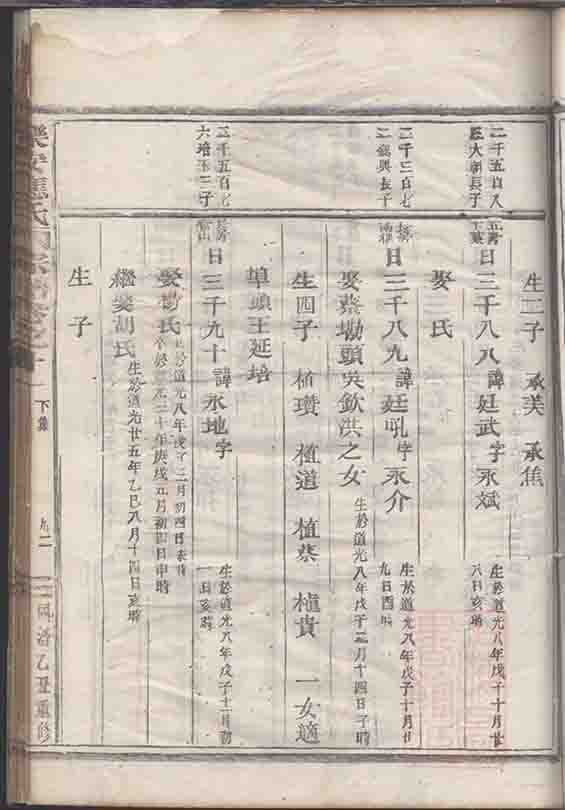 生二子 承美 承焦
二千五百八
三大朝長子
日三千八八諱廷武字永斌
生於道光八年戊子十月廿
六日亥時
娶氏
二千三百七
二 興長子
日三千八九諱廷吼字永介
生於道光八年戊子十月廿
九日酉時
娶蔡墈頭吳欽洪之女
生於道光八年戊子二月十四日子時
生四子 植瓚 植道 植蔡 植貴 一女適
埠頭王延培
二千五百七
六培玉三子
日三千九十諱永地字
生於道光八年戊子十二月初
一日亥時
娶楊氏
生於道光八年戊子三月初四日 時
於 元三十年庚戌正月初四日申時
繼娶胡氏
生於道光廿五年乙巳八月十四日亥時
生子
樂安 氏 宗譜卷之十
下集
九二
乙丑重修